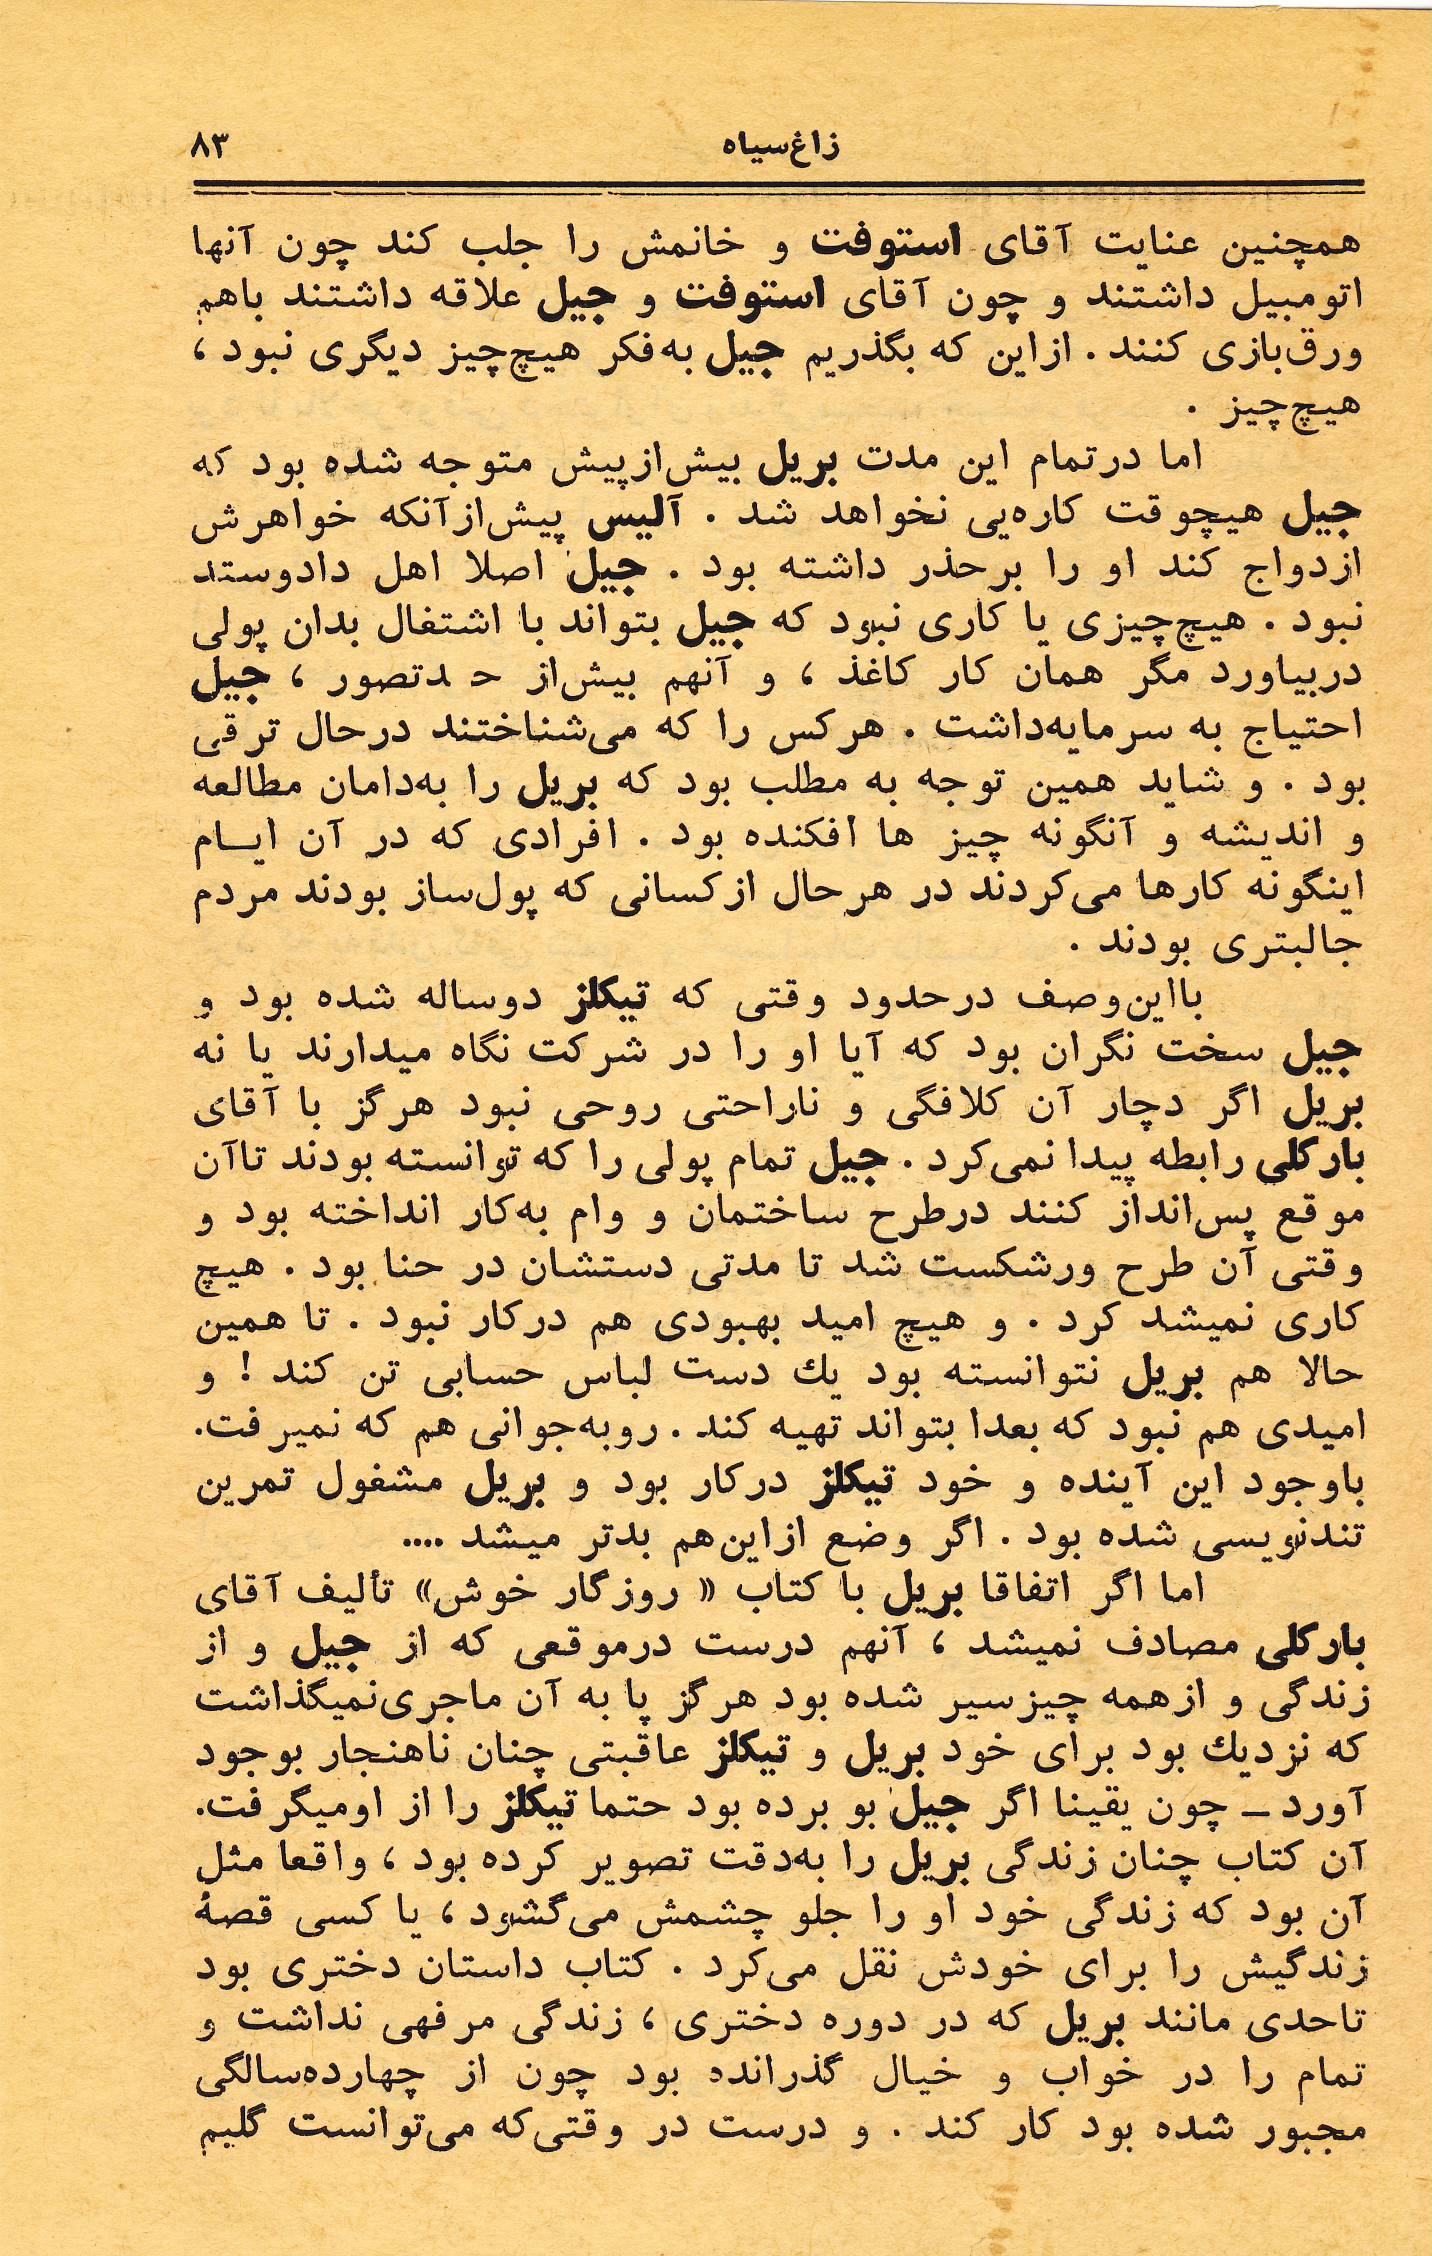 زاغ‌سیاه ۸۳
همچنین عنایت آقای استوفت و خانمش را جلب کند چون آنها
اتومبیل داشتند و چون آقای استوفت و جیل علاقه داشتند باهم
ورق‌بازی کنند . ازاین که بگذریم جیل به‌فکر هیچ‌چیز دیگری نبود ،
هیچ‌چیز .
اما درتمام این مدت بریل بیش‌ازپیش متوجه شده بود که
جیل هیچوقت کاره‌یی نخواهد شد . آلیس پیش‌ازآنکه خواهرش
ازدواج کند او را برحذر داشته بود . جیل اصلا اهل دادوستد
نبود . هیچ‌چیزی یا کاری نبود که جیل بتواند با اشتغال بدان پولی
دربیاورد مگر همان کار کاغذ ، و آنهم بیش‌از حدتصور ، جیل
احتیاج به سرمایه‌داشت . هرکس را که می‌شناختند درحال ترقی
بود . و شاید همین توجه به مطلب بود که بریل را به‌دامان مطالعه
و اندیشه و آنگونه چیز ها افکنده بود . افرادی که در آن ایـــام
اینگونه کارها می‌کردند در هرحال ازکسانی که پول‌ساز بودند مردم
جالبتری بودند .
بااین‌وصف درحدود وقتی که تیکلز دوساله شده بود و
جیل سخت نگران بود که آیا او را در شرکت نگاه میدارند یا نه
بریل اگر دچار آن کلافگی و ناراحتی روحی نبود هرگز با آقای
بارکلی رابطه پیدا نمی‌کرد . جیل تمام پولی را که توانسته بودند تاآن
موقع پس‌انداز کنند درطرح ساختمان و وام به‌کار انداخته بود و
وقتی آن طرح ورشکست شد تا مدتی دستشان در حنا بود . هیچ
کاری نمیشد کرد . و هیچ امید بهبودی هم درکار نبود . تا همین
حالا هم بریل نتوانسته بود یك دست لباس حسابی تن کند ! و
امیدی هم نبود که بعدا بتواند تهیه کند . روبه‌جوانی هم که نمیرفت.
باوجود این آینده و خود تیکلز درکار بود و بریل مشغول تمرین
تندنویسی شده بود . اگر وضع ازاین‌هم بدتر میشد ....
اما اگر اتفاقا بریل با کتاب « روزگار خوش» تألیف آقای
بارکلی مصادف نمیشد ، آنهم درست درموقعی که از جیل و از
زندگی و ازهمه چیزسیر شده بود هرگز پا به آن ماجری‌نمیگذاشت
که نزدیك بود برای خود بریل و تیکلز عاقبتی چنان ناهنجار بوجود
آورد ـ چون یقینا اگر جیل بو برده بود حتما تیکلز را از اومیگرفت.
آن کتاب چنان زندگی بریل را به‌دقت تصویر کرده بود ، واقعا مثل
آن بود که زندگی خود او را جلو چشمش می‌گشود ، یا کسی قصهٔ
زندگیش را برای خودش نقل می‌کرد . کتاب داستان دختری بود
تاحدی مانند بریل که در دوره دختری ، زندگی مرفهی نداشت و
تمام را در خواب و خیال گذرانده بود چون از چهارده‌سالگی
مجبور شده بود کار کند . و درست در وقتی‌که می‌توانست گلیم